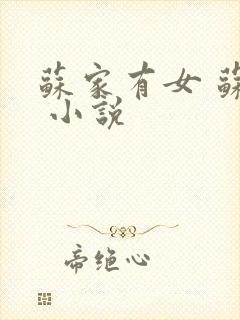 蘇家有女 蘇
小說
帝绝心